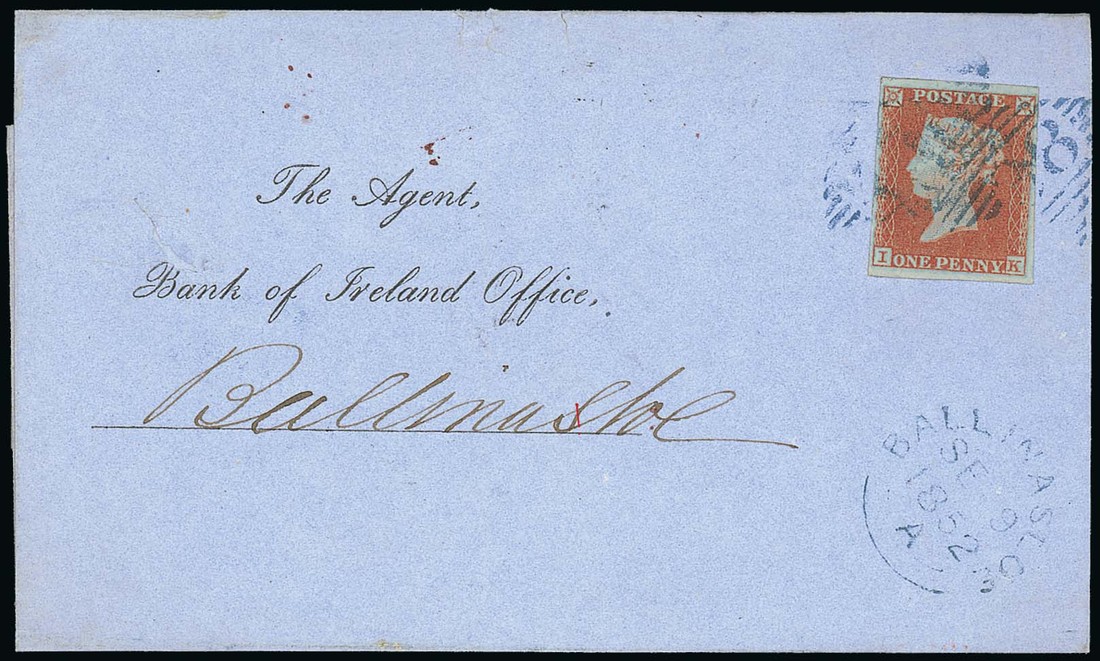 POSTAGE
I ONE PENNY K
The Agent,
Bank of Ireland Office,
Ballinasloe
BALLINASLOE
SE 9
1852
A